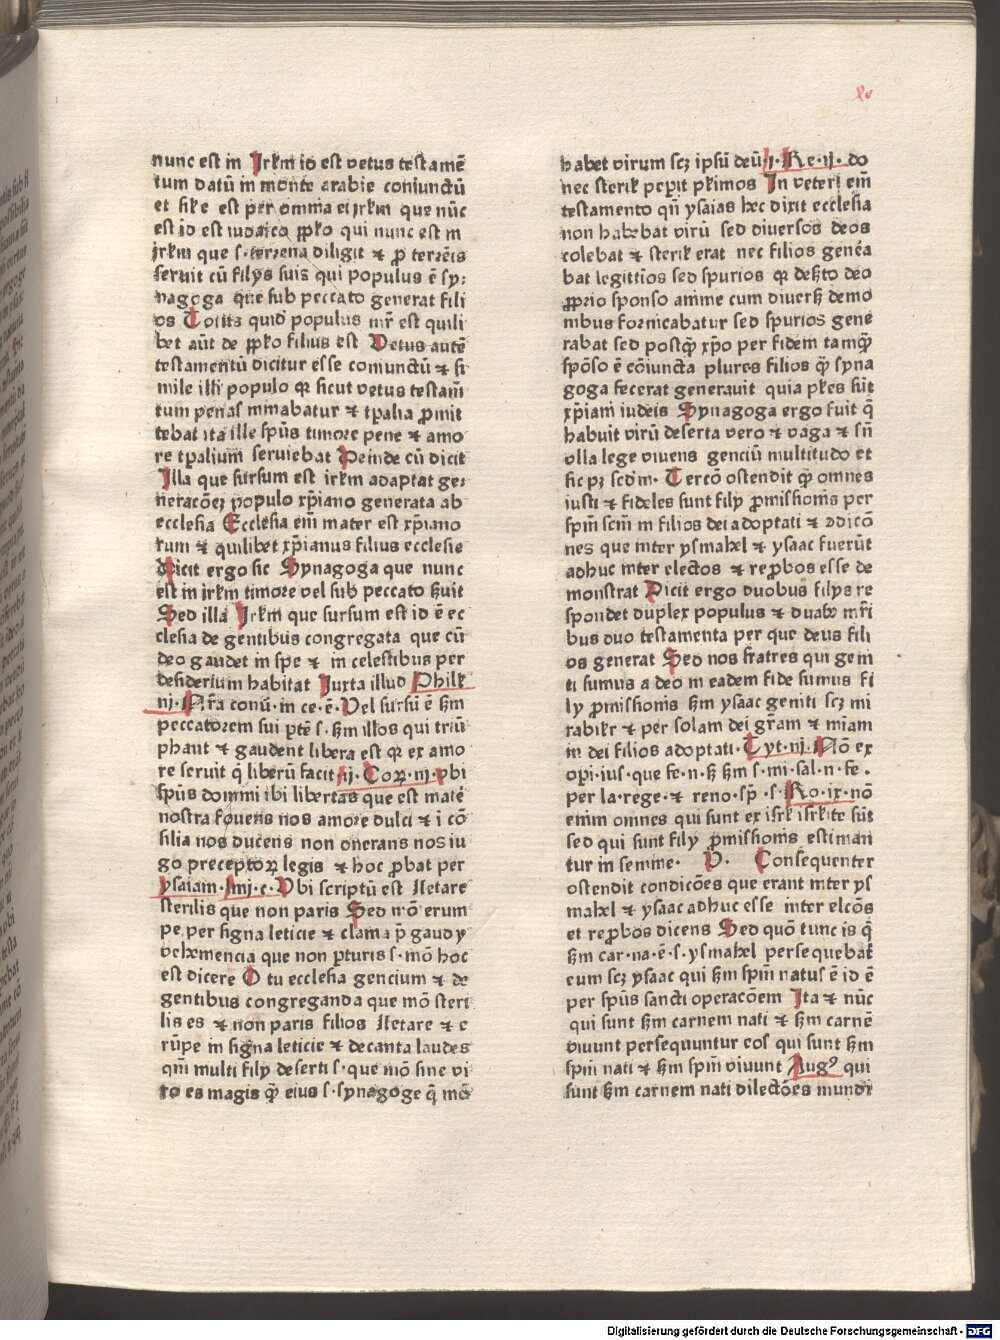 nunc est in Jrl̄m id est vetus testamē
tum datū in monte arabie coniunctū
et sil̄e est per omnia ei jrl̄m que nūc
est id est iudaico pp̄lo qui nunc est in
jrl̄m que s· terrena diligit ⁊ ꝓ terrēis
seruit cū filijs suis qui populus ē sy-
nagoga que sub peccato generat fili
os Totus quid populus mr̄ est quili
bet aūt de pp̄lo filius est Vetus autē
testamentū dicitur esse coniunctū ⁊ si
mile illi populo qꝛ sicut vetus testam̄
tum penas minabatur ⁊ tp̄alia ꝓmit
tebat ita ille spūs timore pene ⁊ amo
re tp̄alium seruiebat Deinde cū dicit
Illa que sursum est irl̄m adaptat ge-
neracōeꝫ populo xp̄iano generata ab
ecclesia Ecclesia em̄ mater est xp̄iano
rum ⁊ quilibet xp̄ianus filius ecclesie
Dicit ergo sic Synagoga que nunc
est in jrl̄m timore vel sub peccato ẜuit
Sed illa Jrl̄m que sursum est id ē ec
clesia de gentibus congregata que cū
deo gaudet in spe ⁊ in celestibus per
desiderium habitat Iuxta illud Phil̄
iij· Nr̄a conū· in ce·ē· Vel sursū ē ẜm
peccatorem sui pt̄e s· ẜm illos qui triū
phant ⁊ gaudent libera est qꝛ ex amo
re seruit q̄ liberū facit ij· Coꝝ·iij· vbi
spūs domini ibi libertas que est mat̄e
nostra fouens nos amore dulci ⁊ i cō
silia nos ducens non onerans nos iu
go preceptoꝝ legis ⁊ hoc ꝓbat per
ysaiam· liiij·c· Vbi scriptū est Letare
sterilis que non paris Sed mō erum
pe per signa leticie ⁊ clama p̄ gaudij
vehemencia que non ꝑturis s· mō hoc
est dicere O tu ecclesia gencium ⁊ de
gentibus congreganda que mō steri
lis es ⁊ non paris filios Letare ⁊ e
rūpe in signa leticie ⁊ decanta laudes
qm̄ multi filij deserti s· que mō sine vi
ro es magis qꝫ̄ eius s· synagoge q̄ mō
habet virum scꝫ ipsū deū j· Re·ij· do
nec steril̄ peꝑit pl̄imos In veteri em̄
testamento qn̄ ysaias hec dixit ecclesia
non habebat virū sed diuersos deos
colebat ⁊ steril̄ erat nec filios genēa
bat legittīos sed spurios qꝛ del̄cto deo
ꝓprio sponso anime cum diuersꝭ demo
nibus fornicabatur sed spurios gene
rabat sed postqꝫ̄ xp̄o per fidem tamqꝫ̄
spōso ē cōiuncta plures filios qꝫ̄ syna
goga fecerat generauit quia pl̄es sūt
xp̄iani iudeis Synagoga ergo fuit q̄
habuit virū deserta vero ⁊ vaga ⁊ sn̄
vlla lege viuens genciū multitudo et
sic pꝫ scd̄m· Tercō ostendit qꝫ̄ omnes
iusti ⁊ fideles sunt filij ꝓmissionis per
spm̄ scm̄ in filios dei adoptati ⁊ ꝯdicō
nes que inter ysmahel ⁊ ysaac fuerūt
adhuc inter electos ⁊ reꝓbos esse de
monstrat Dicit ergo duobus filijs re
spondet duplex populus ⁊ duabꝫ mr̄i
bus duo testamenta per que deus fili
os generat Sed nos fratres qui geni
ti sumus a deo in eadem fide sumus fi
lij ꝓmissionis ẜm ysaac geniti scꝫ mi
rabilr̄ ⁊ per solam dei gr̄am ⁊ mīam
in dei filios adoptati· Tyt·iij· Nō ex
oꝑi·ius·que fe·n·ẜ ẜm s·mi·sal·n·fe·
per la·rege·⁊ reno·sp̄·s· Ro·ix·nō
enim omnes qui sunt ex isrl̄ isrl̄ite sūt
sed qui sunt filij ꝓmissionis estiman
tur in semine· D· Consequenter
ostendit condicōes que erant inter ys
mahel ⁊ ysaac adhuc esse inter elcōs
et reꝓbos dicens Sed quō tunc is q̄
ẜm car·na·ē·s·ysmahel persequebat̄
eum scꝫ ysaac qui ẜm spm̄ natus ē id ē
per spūs sancti operacōem Ita ⁊ nūc
qui sunt ẜm carnem nati ⁊ ẜm carnē
viuunt persequuntur eos qui sunt ẜm
spm̄ nati ⁊ ẜm spm̄ viuunt Augꝰ qui
sunt ẜm carnem nati dilectōes mundi
Digitalisierung gefördert durch die Deutsche Forschungsgemeinschaft - DFG